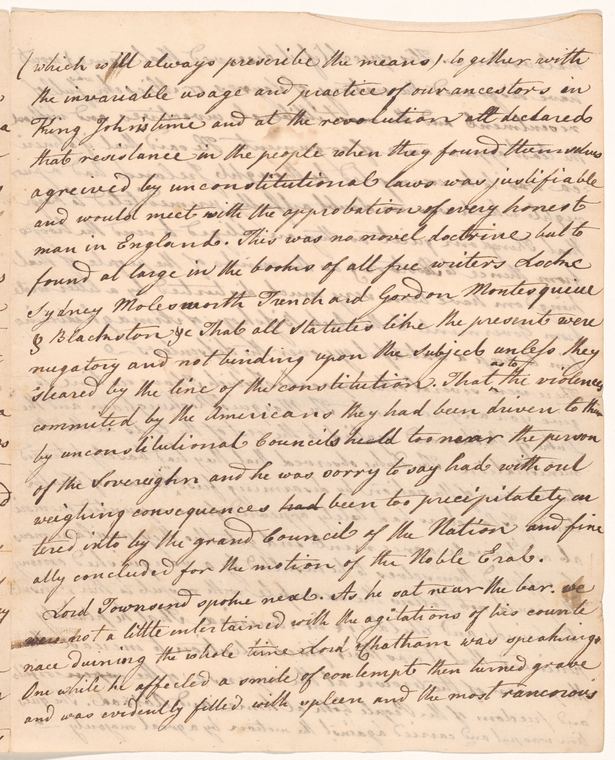 (which will always prescribe the means) together with
the invariable usage and practice of our ancestors in
King Johnstime and at the revolution all declared
that resistance in the people when they found themselves
agreived by unconstitutional laws was justifiable
and would meet with the approbation of every honest
man in England. This was no novel doctrine but to
found at large in the books of all free writers Locke
Sydney Molesworth Trenchard Gordon Montesquieu
& Blackston &c That all statutes like the present were
nugatory and not binding upon the Subject unless they
steared by the line of the constitution. That as to the violences
commited by the Americans they had been driven to them
by unconstitutional Councils heeld too near the person
of the Sovereighn and he was sorry to say had without
weighing consequences had been too precipitately en
tered into by the grand Council of the Nation and fine
ally concluded for the motion of the Noble Eral.
Lord Townsend spoke next. As he sat near the bar. we
were not a little entertained with the agitations of his counte
nace duining the whole time Lord Chatham was speaking
One while he affected a smile of contempt then turned grave
and was evidently filled with spleen and the most rancorous